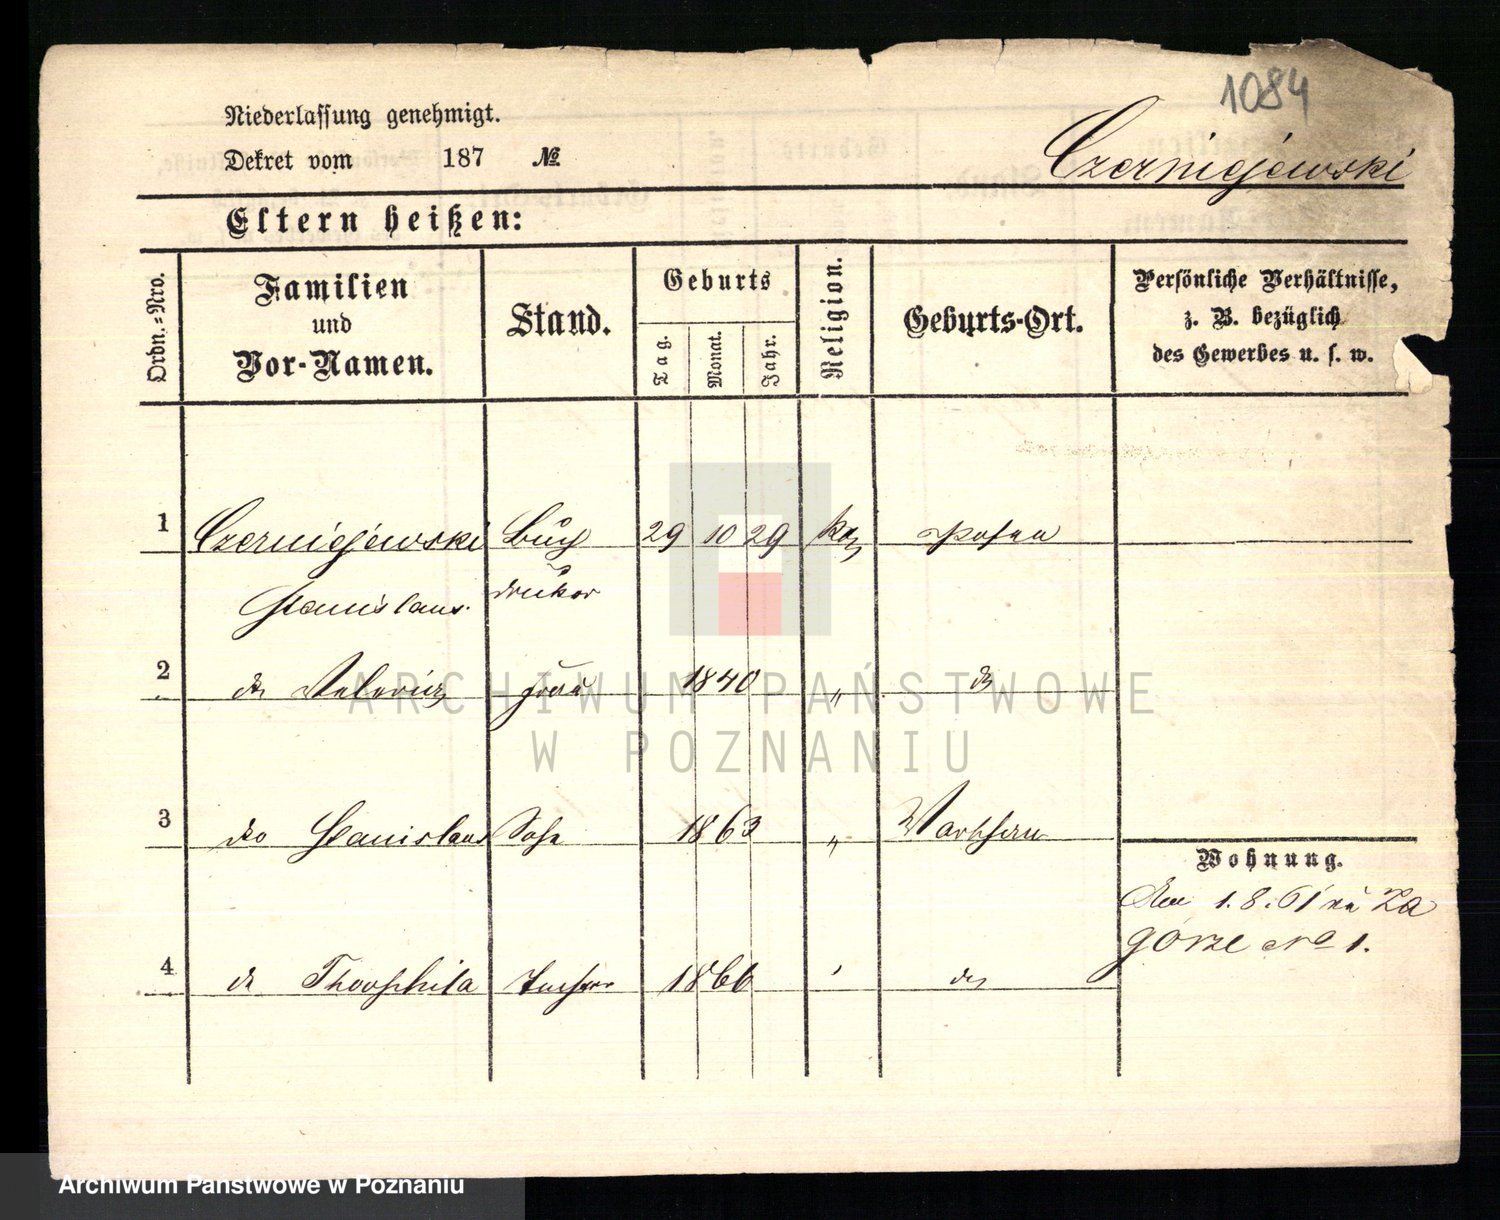 1084
Niederlassung genehmigt.
Dekret vom 187 №
Czerniejewski
Eltern heißen:
Ordn.-Nro.
Familien
und
Vor-Namen.
Stand.
Geburts
Tag.
Monat.
Jahr.
Religion.
Geburts-Ort.
Persönliche Verhältnisse,
z. B. bezüglich
des Gewerbes u. s. w.
1 Czerniejewski Buch 29 10 29 kaz Posen
Stanislaus. druker
2 do Valeria Frau 1840 " do
3 do Stanislaus Sohn 1863 " Warschau
Wohnung.
1.8.61 Za
górze No 1.
4 do Theophila Tochter 1866 " do
ARCHIWUM PAŃSTWOWE
W POZNANIU
Archiwum Państwowe w Poznaniu